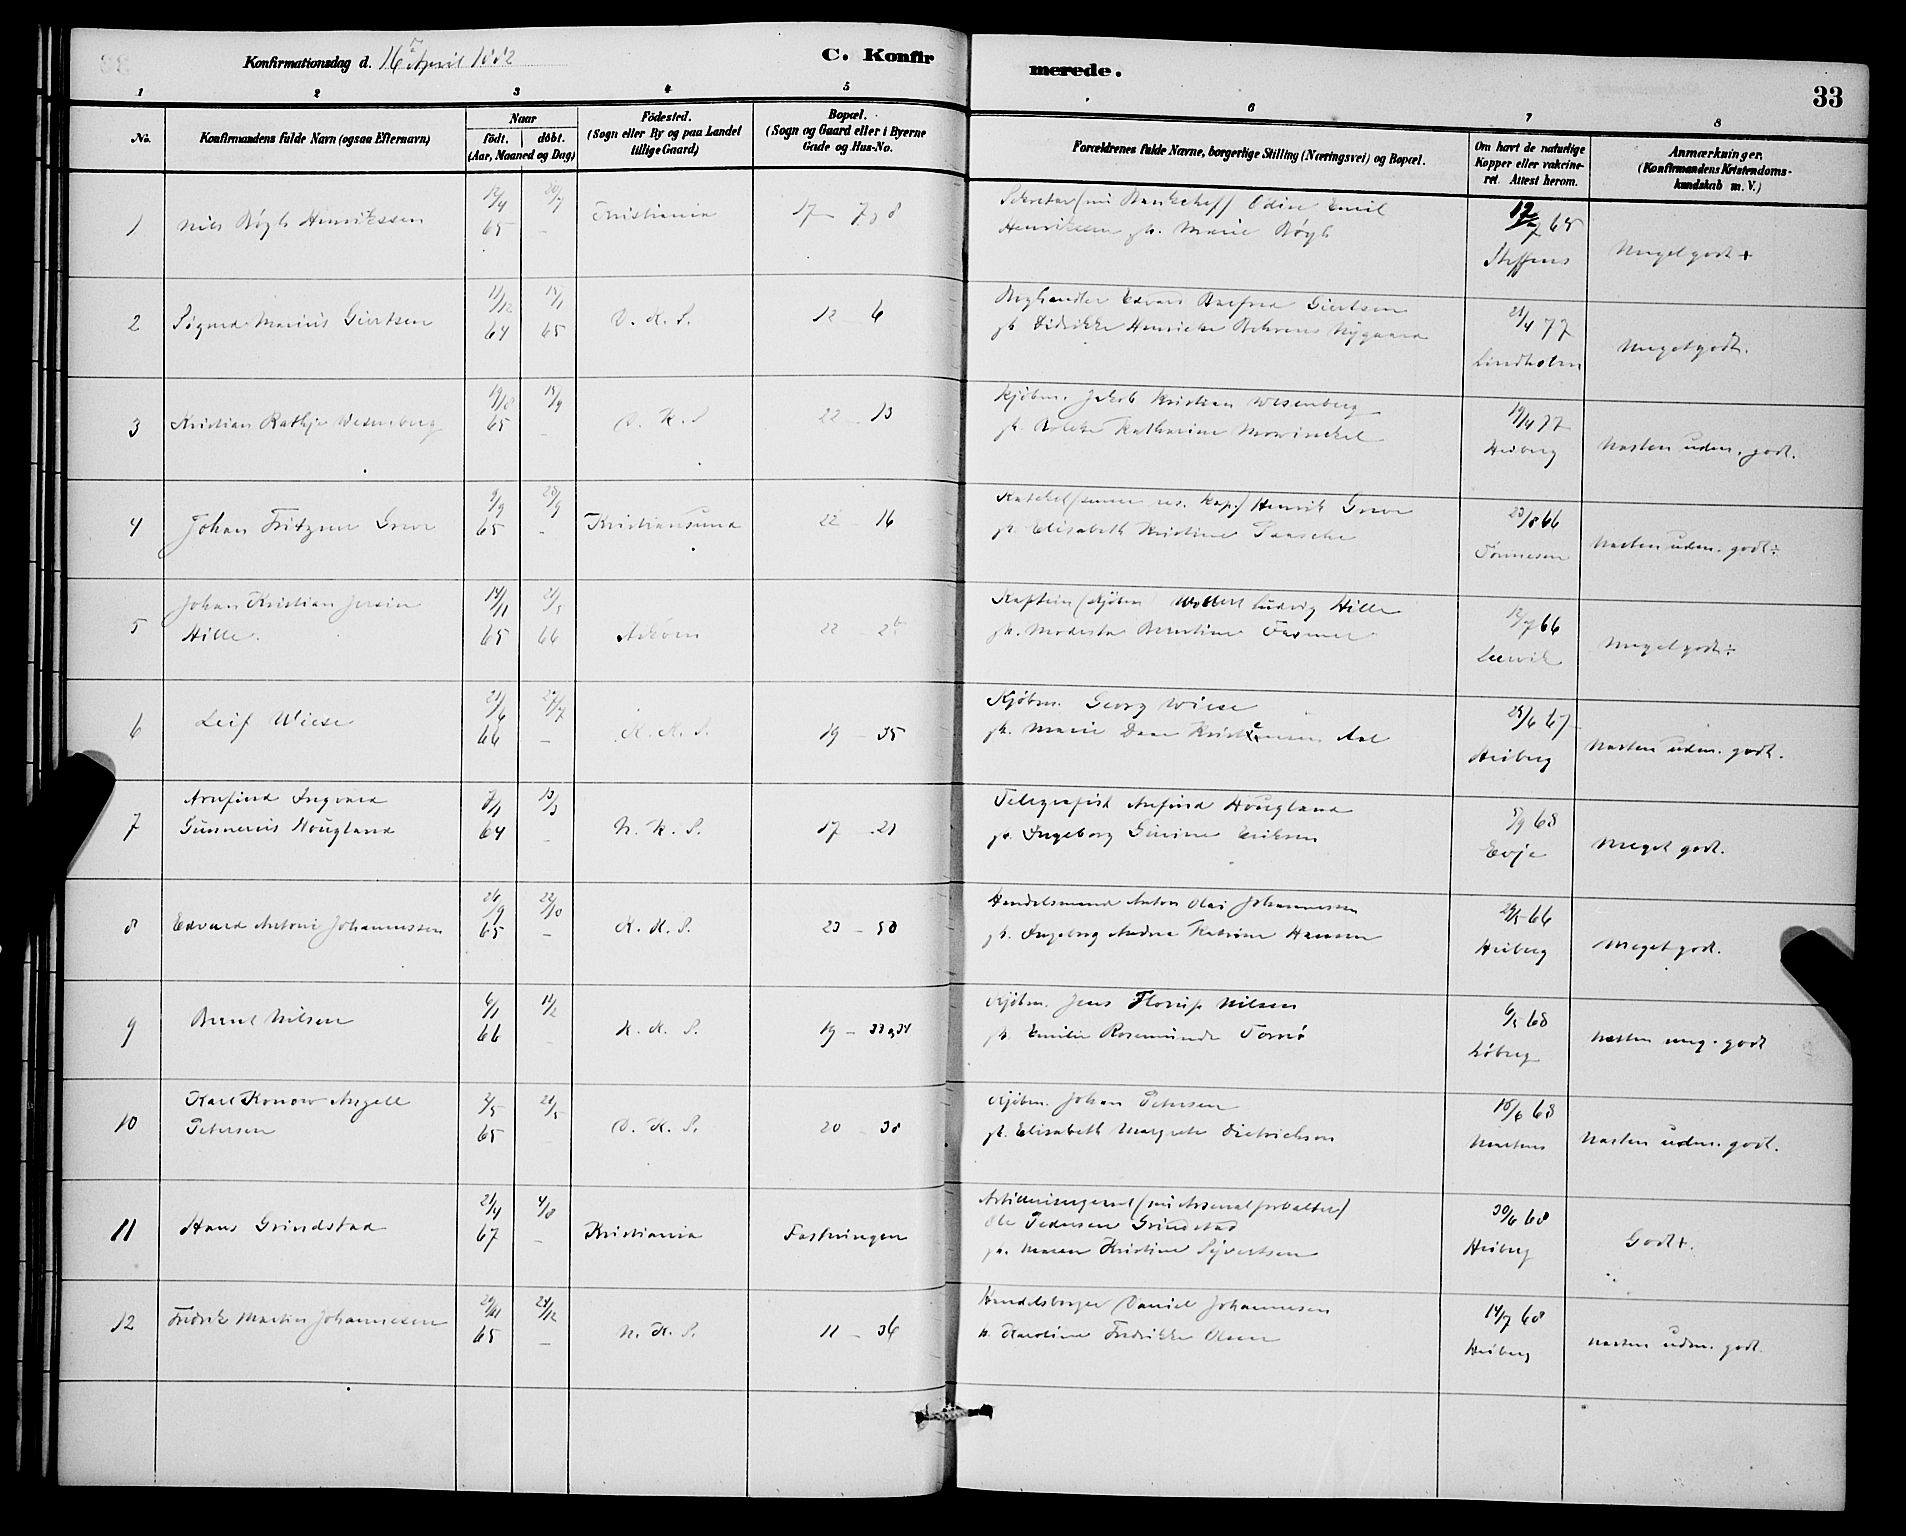 Konfirmationsdag d. 16de April 1882
C. Konfir
merede.
33
1 2 3 4 5
6 7 8
No.
Konfirmandens fulde Navn (ogsaa Efternavn)
Naar
födt. döbt.
(Aar, Maaned og Dag)
Födested.
(Sogn eller By og paa Landet
tillige Gaard)
Bopæl.
(Sogn og Gaard eller i Byerne
Gade og Hus-No.
Forældrenes fulde Navne, borgerlige Stilling (Næringsvei) og Bopæl.
Om havt de naturlige
Kopper eller vakcine-
ret. Attest herom.
Anmærkninger.
(Konfirmandens Kristendoms-
kundskab m. V.)
1 Nils Bøgh Henrikssen 12/4 65 20/7 – Kristiania 17 – 7,8
Odin Emil
Henrikssen gh. Marie Bøgh
65 Steffens
Meget godt +
2 Sigurd Marius Giertsen 11/12 64 15/1 65 D. K. S. 12 – 6
Boghandler Edvard Giertsen
gh. Didrikke Henrikke Behrens Nygaard
21/4 77
Lindholm
Meget godt.
3 Kristian Rathje Wesenberg 19/8 65 – D. K. S 22 – 13
Kjøbm. Jakob Kristian Wesenberg
gh. Bolette Katharine Mowinckel
19/4 77
Heiberg
Næsten udm. godt.
4 Johan Fritzner Greve 9/9 65 28/9 – Kristiansund 22 – 16
Henrik Greve
gh. Elisabeth Kristine Paasche
23/8 66
Tønnesen
Næsten udm. godt ÷
5 Johan Kristian Jersin
Hille. 14/11 65 21/5 66 Askøen 22 – 2b
Kaptein (Kjøbm) Wollert Ludvig Hille
gh. Modesta Berntine Fasmer
12/7 66
Leervik
Meget godt ÷
6 Leif Wiese 21/6 66 27/7 – K. K. S. 19 – 35
Kjøbm. Georg Wiese
gh. Marie Daae Aal
25/6 67
Heiberg
Næsten udm. godt.
7 Arnfind Ingvard
Gunnerius Hougland 64 13/3 – N. K. S. 17 – 21
Telegrafist Arnfind Hougland
gh. Ingeborg Eriksen
5/9 68
Evje
Meget godt.
8 Edvard Antoni Johannessen 26/9 65 22/10 – K. K. S. 23 – 50
Handelsmand Anton Olai Johannessen
gh. Ingeborg Andrea Katrine Hansen
66
Heiberg
Meget godt.
9 Bernt Nilsen 6/1 66 11/2 – K. K. S. 19 –
Kjøbm. Jens Florup Nilsen
gh. Emilie Rosamunde Tornø
68
Løberg
Næsten meg. godt
10 Karl Konow Angell
Petersen 2/5 65 21/5 – D. K. S. 20 – 30
Kjøbm. Johan Petersen
gh. Elisabeth Margrete Dietrichson
15/6 68
Martens
Næsten udm. godt.
11 Hans Grindstad 21/4 67 4/8 – Kristiania Fæstningen
Artillerisergeant (nu Arsenalforvalter)
Ole Pedersen Grindstad
gh. Maren Kristine Syvertsen
30/6 68
Heiberg
Godt +.
12 Fredrik Martin Johannesen 65 – N. K. S. 11 – 36
Handelsborger Daniel Johannesen
h. Karoline Fredrikke Olsen
14/7 68
Heiberg
Næsten udm. godt.